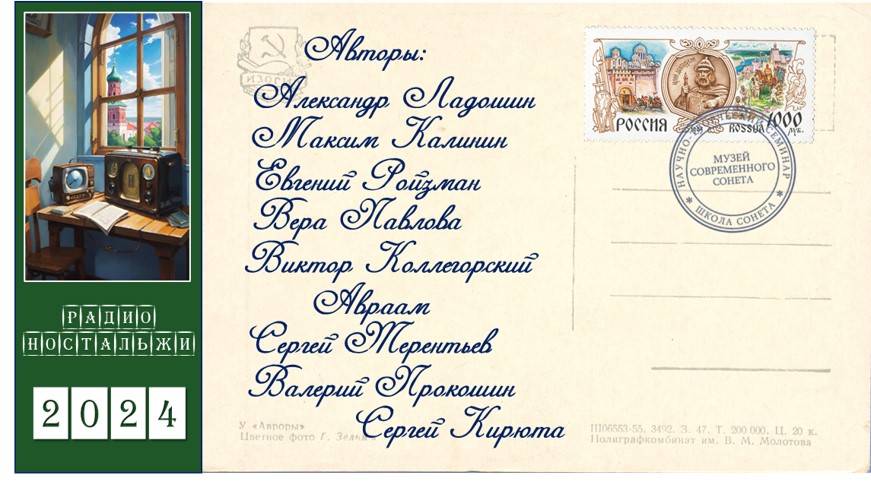 РАДИО
НОСТАЛЬЖИ
2024
Авторы:
Александр Ладошин
Максим Калинин
Евгений Ройзман
Вера Павлова
Виктор Коллегорский
Авраам
Сергей Терентьев
Валерий Прокошин
Сергей Кирюта
РОССИЯ
ROSSIJA
1000
РУБ.
НАУЧНО-ТВОРЧЕСКИЙ СЕМИНАР
МУЗЕЙ
СОВРЕМЕННОГО
СОНЕТА
* ШКОЛА СОНЕТА *
У «Авроры»
Цветное фото Г.
Ш06553-55. 3492. З. 47. Т. 200 000. Ц. 20 к.
Полиграфкомбинат им. В. М. Молотова